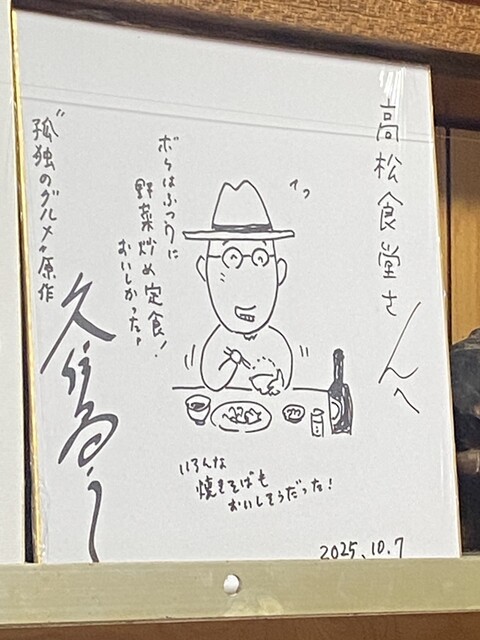 高松食堂さんへ
ボクはふつうに
野菜炒め定食!
おいしかった。
"孤独のグルメ"原作
久住昌之
いろんな
焼きそばも
おいしそうだった!
2025.10.7